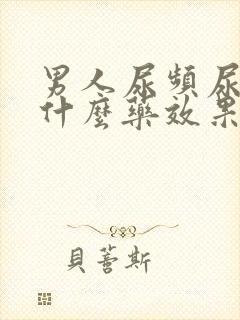 男人尿頻尿
什麼藥效果
貝蒈斯